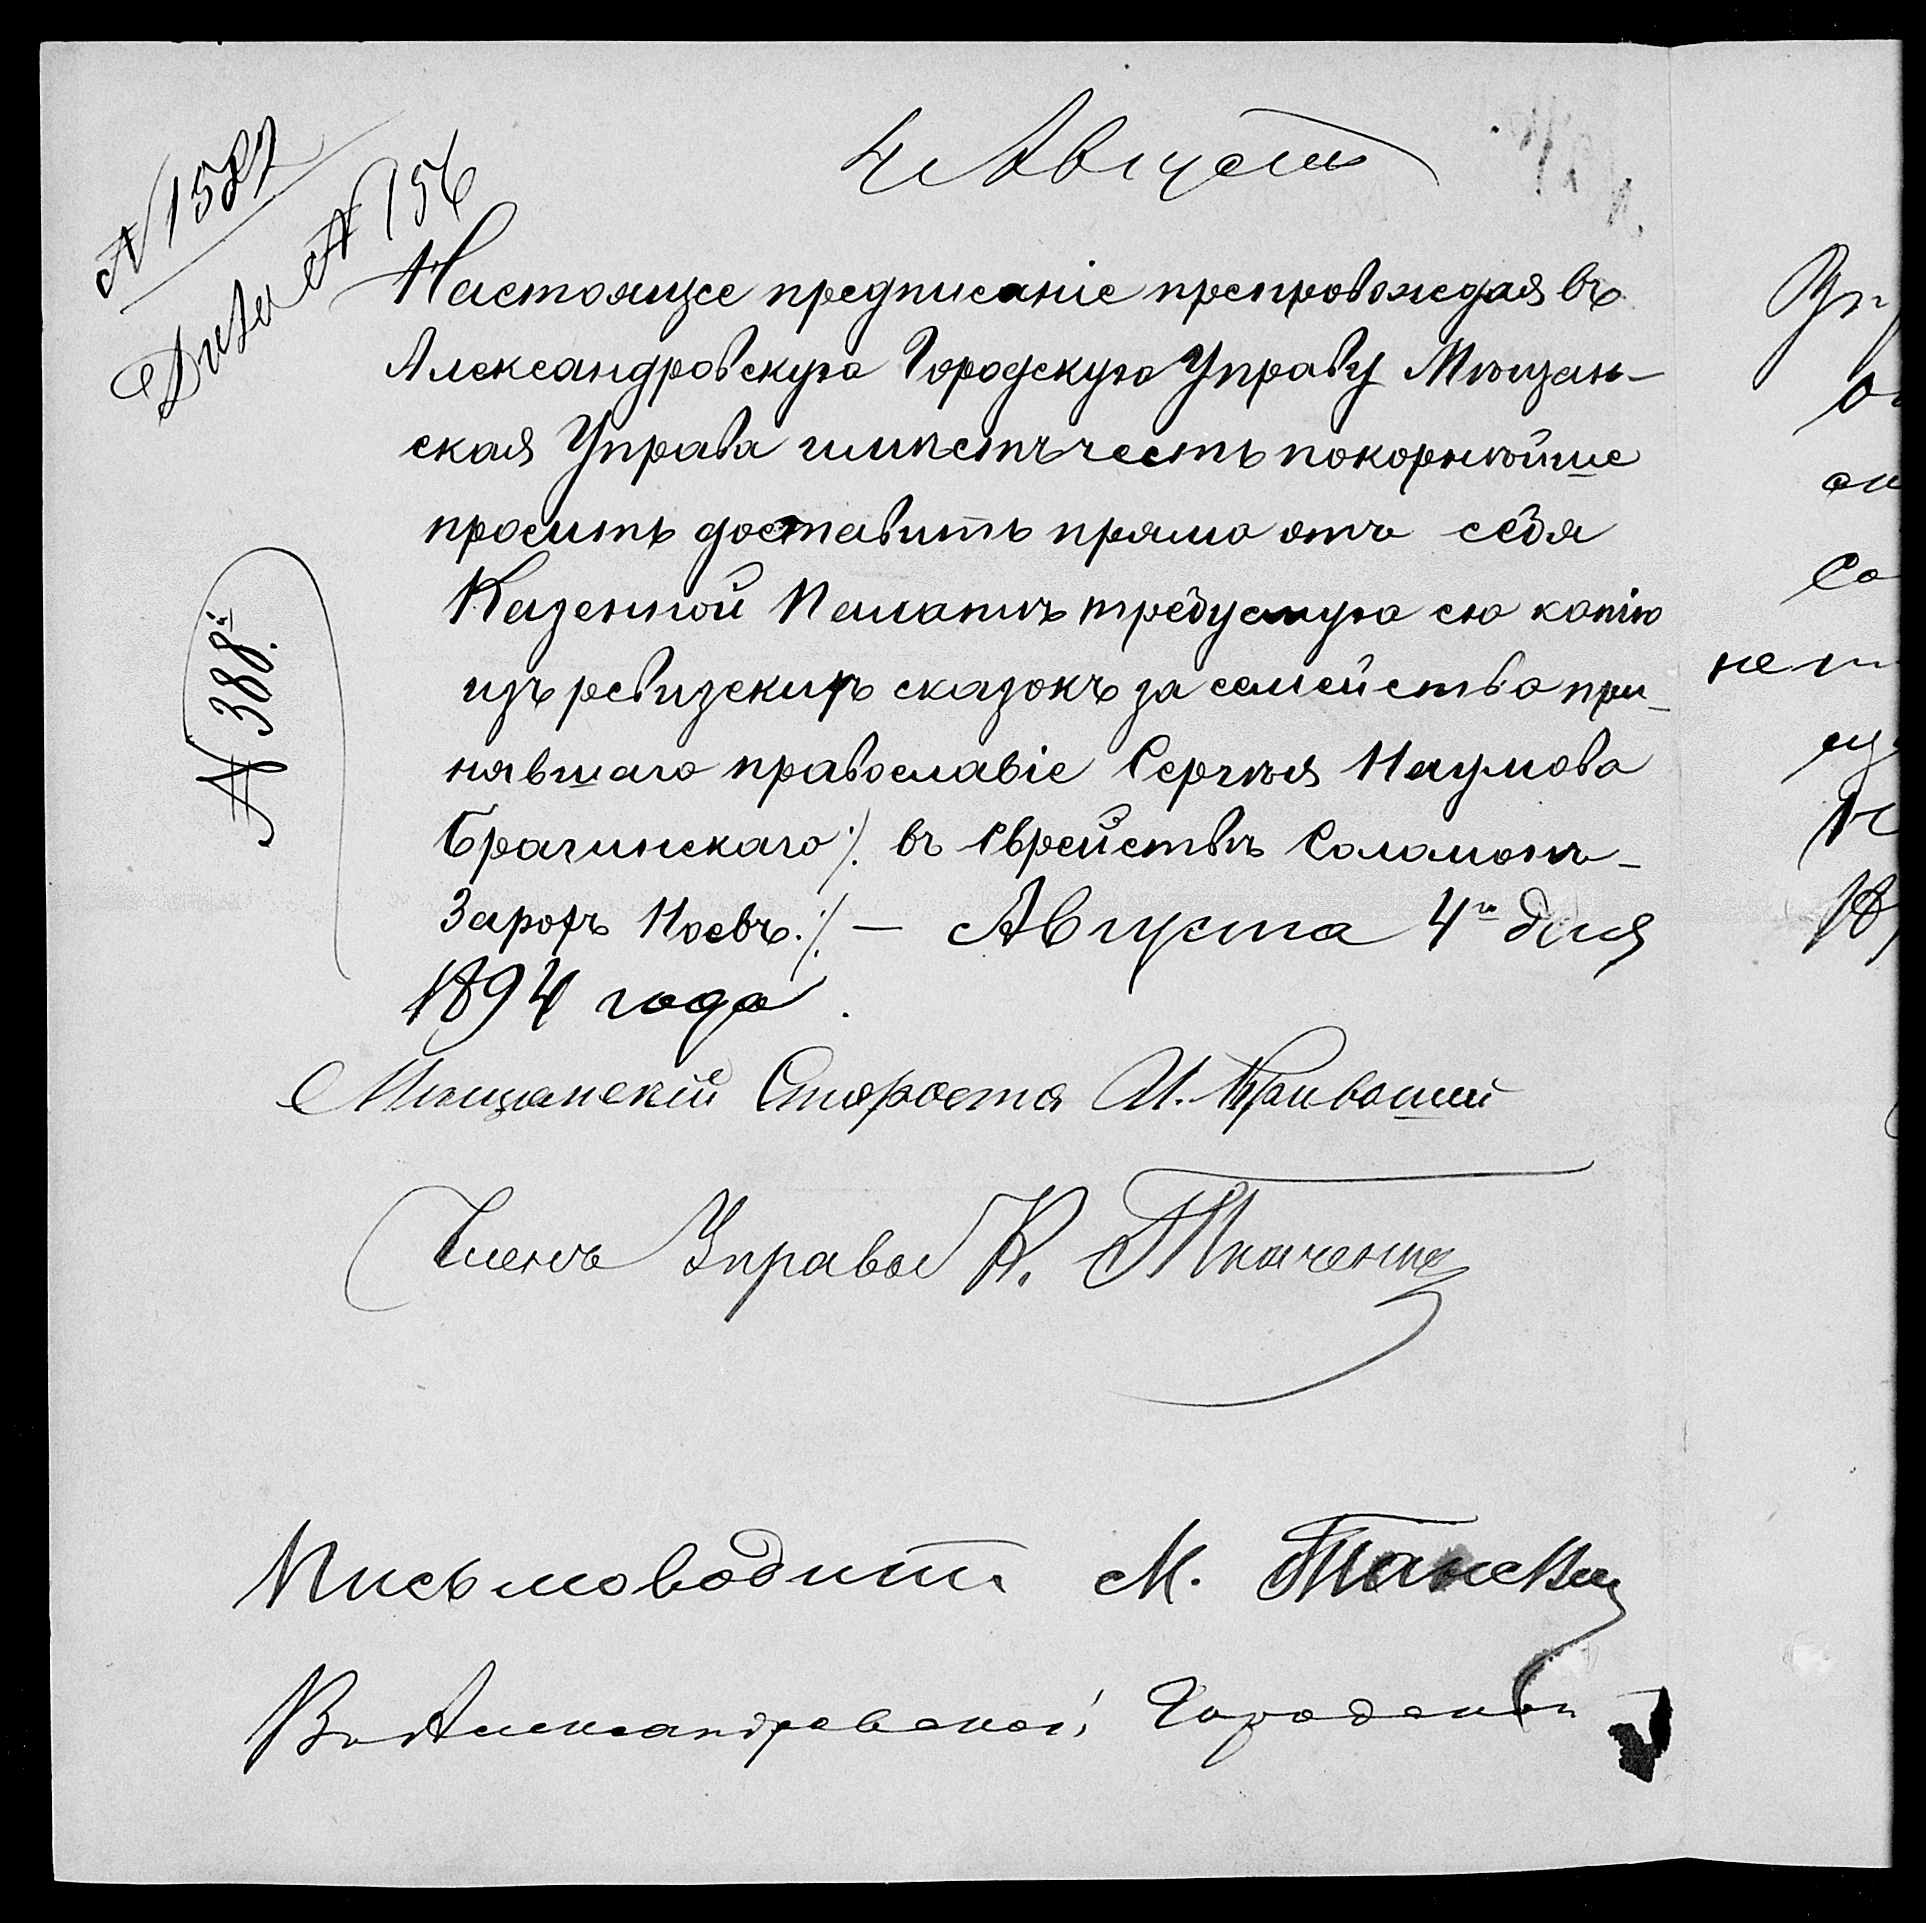 4 Август
№ 1582
Дѣла № 156
Настоящее предписаніе препровождая въ
Александровскую Городскую Управу Мѣщан-
ская Управа имѣетъ честь покорнѣйше
просить доставить прямо отъ себя
Казенной Палатѣ требуемую ею копію
изъ ревизскихъ сказокъ за семейство при-
нявшаго православіе Сергѣя Наумова
Брагинскаго /: въ Еврействѣ Соломонъ-
Зарохъ Ноевъ :/ — Августа 4го дня
1894 года.
№ 388й.
Мѣщанскій Староста И.
Членъ Управы К. Ткаченко
Письмоводит. М.
Въ Александровской Городской